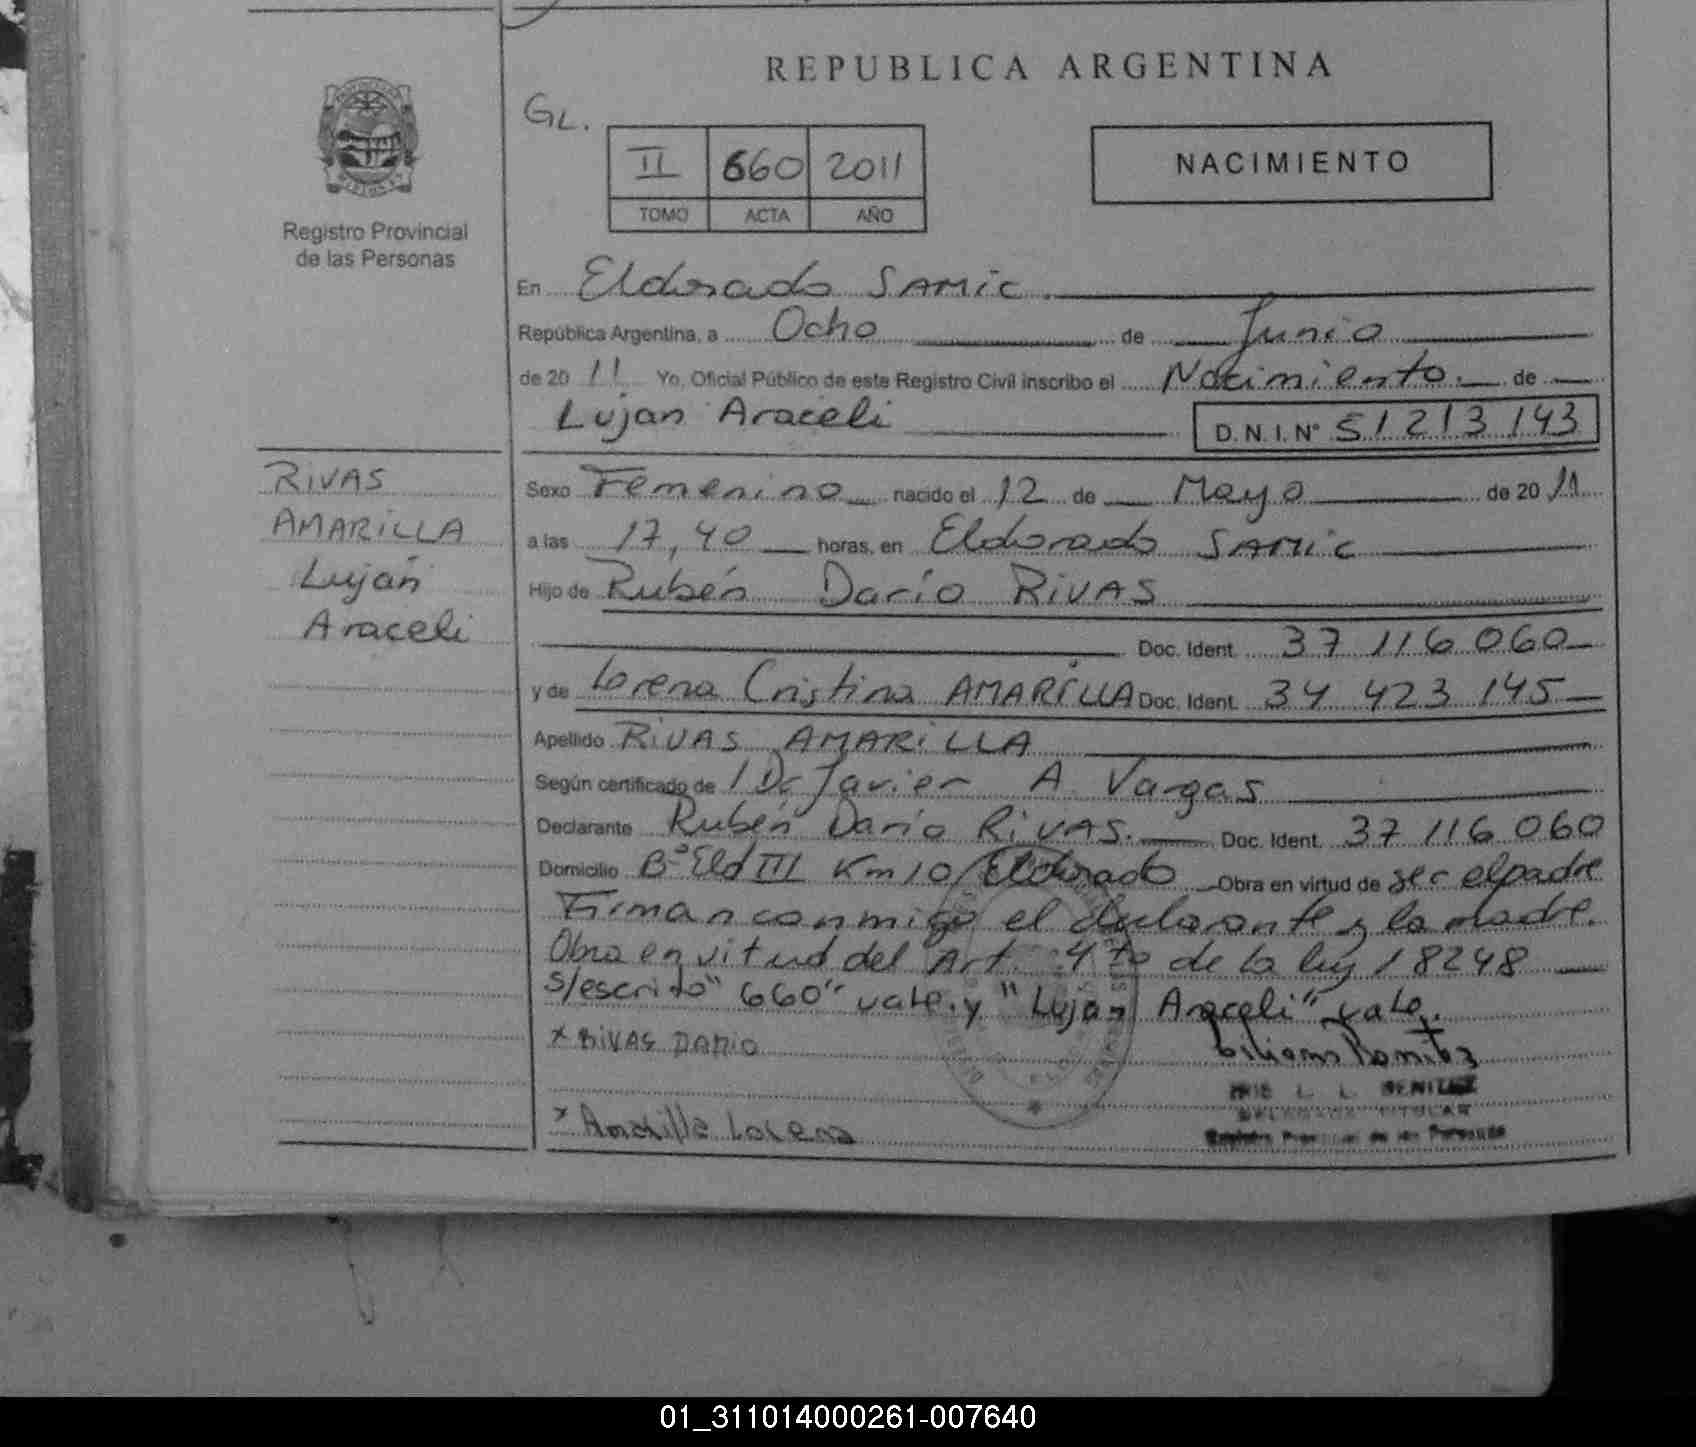 REPUBLICA ARGENTINA
GL.
II 660 2011
TOMO ACTA AÑO
NACIMIENTO
Registro Provincial
de las Personas
En Eldorado SAMIC.
República Argentina, a Ocho de Junio
de 2011 Yo, Oficial Público de este Registro Civil inscribo el Nacimiento. de
Lujan Araceli D.N.I. N° 51 213 143
RIVAS
AMARILLA
Luján
Araceli
Sexo Femenino nacido el 12 de Mayo de 2011
a las 17,40 horas, en Eldorado SAMIC
Hijo de Rubén Darío RIVAS
Doc. Ident. 37 116 060
y de Lorena Cristina AMARILLA Doc. Ident. 34 423 145
Apellido RIVAS AMARILLA
Según certificado de / Dr Javier A Vargas
Declarante Rubén Darío RIVAS. Doc. Ident. 37 116 060
Domicilio B° Eld III Km 10 / Eldorado Obra en virtud de ser el padre
Firman conmigo el declarante y la madre.
Obra en vitud del Art. 4to de la ley 18248
s/escrito "660" vale. y "Lujan Araceli" vale.
x RIVAS DARIO
Liliana Benitez
L. L. BENITEZ
DELEGADA TITULAR
Registro Provincial de las Personas
x Amarilla Lorena
01_311014000261-007640